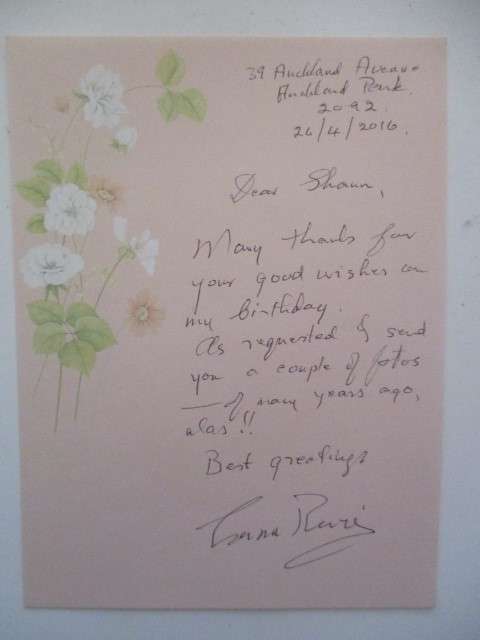 39 Auckland Avenue
Auckland Park.
2092.
26/4/2016.
Dear Shaun,
Many thanks for
your good wishes on
my birthday.
As requested I send
you a couple of fotos
— of many years ago,
alas!!
Best greetings